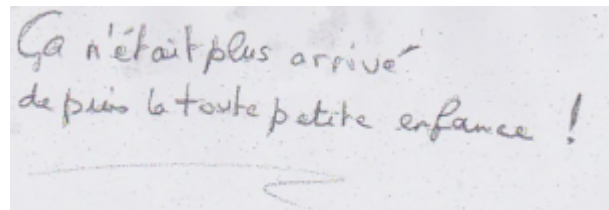 Ça n'était plus arrivé
depuis la toute petite enfance !